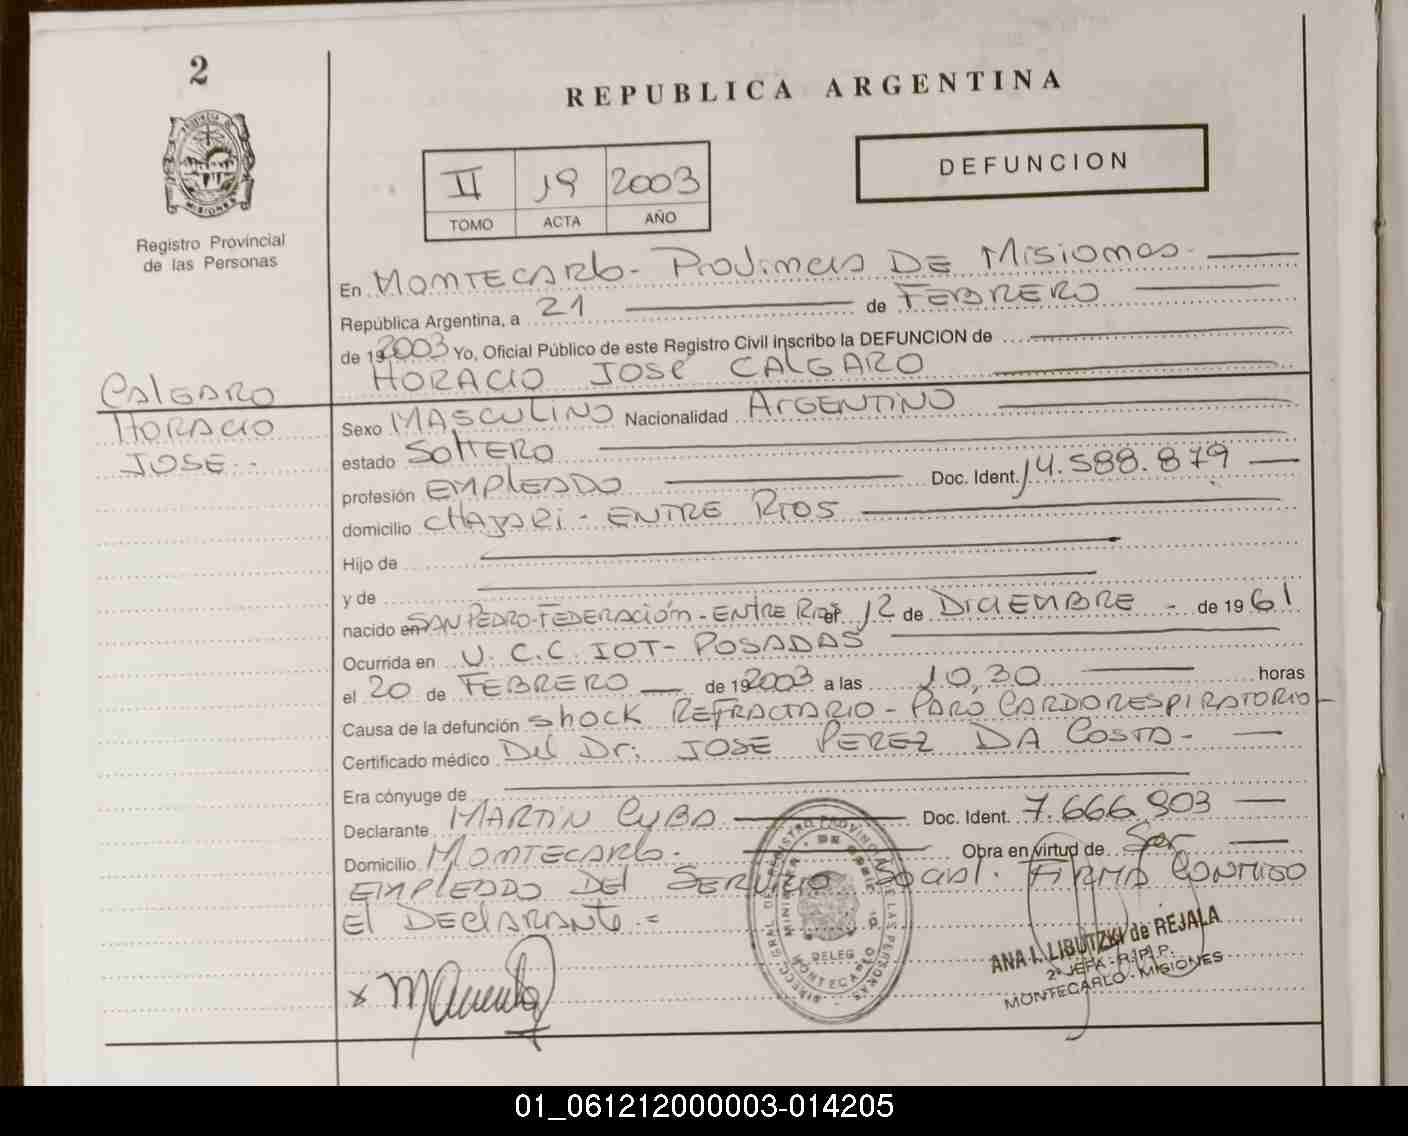 2
REPUBLICA ARGENTINA
PROVINCIA DE
MISIONES
Registro Provincial
de las Personas
II 19 2003
TOMO ACTA AÑO
DEFUNCION
En MONTECARlo - Provincia DE Misiones -
República Argentina, a 21 de FEBRERO
de 192003 Yo, Oficial Público de este Registro Civil inscribo la DEFUNCION de
HORACIO JOSÉ CALGARO
CALGARO
HORACIO
JOSE.-
Sexo MASCULINO Nacionalidad ARGENTINO
estado SOLTERO
profesión EMPLEADO Doc. Ident. 14.588.879
domicilio CHAJARI - ENTRE RIOS
Hijo de
y de
nacido en SAN PEDRO-FEDERACIÓN-ENTRE RIOS el 12 de DICIEMBRE - de 1961
Ocurrida en U.C.C. IOT- POSADAS
el 20 de FEBRERO de 192003 a las 10,30 horas
Causa de la defunción Shock REFRACTARIO - PARO CARDORESPIRATORIO -
Certificado médico Del Dr: JOSE PEREZ DA COSTA -
Era cónyuge de
Declarante MARTIN CUBA Doc. Ident. 7.666.903
Domicilio MONTECARlo. Obra en virtud de Ser
EMPLEADO DEl SERVICIO Social. FIRMA CONMIGO
El DEClARANTE.=
x
DELEG
MONTECARLO
ANA I. LIBUTZKI de REJALA
2ª JEFA - R.P.P.
MONTECARLO - MISIONES
01_061212000003-014205